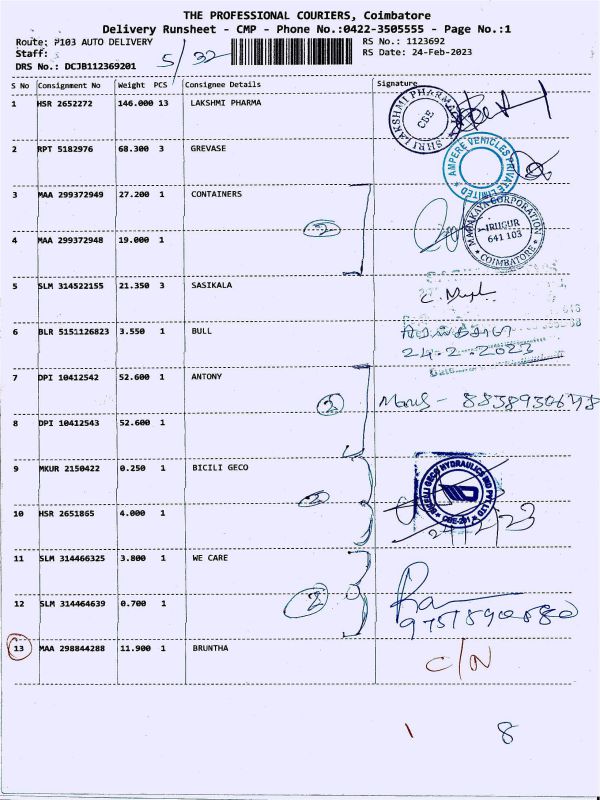 THE PROFESSIONAL COURIERS, Coimbatore
Delivery Runsheet - CMP - Phone No.:0422-3505555 - Page No.:1
Route: P103 AUTO DELIVERY
RS No.: 1123692
Staff:
5/32
RS Date: 24-Feb-2023
DRS No.: DCJB112369201
S No Consignment No Weight PCS Consignee Details Signature
1 HSR 2652272 146.000 13 LAKSHMI PHARMA
SHRI LAKSHMI PHARMA CBE
2 RPT 5182976 68.300 3 GREVASE
AMPERE VEHICLES PRIVATE LIMITED
3 MAA 299372949 27.200 1 CONTAINERS
2
CORPORATION
IRUGUR
641 103
COIMBATORE
4 MAA 299372948 19.000 1
5 SLM 314522155 21.350 3 SASIKALA
6 BLR 5151126823 3.550 1 BULL
24-2-2023
7 DPI 10412542 52.600 1 ANTONY
2
8 DPI 10412543 52.600 1
9 MKUR 2150422 0.250 1 BICILI GECO
2
GECO HYDRAULICS IND PVT LTD
10 HSR 2651865 4.000 1
11 SLM 314466325 3.800 1 WE CARE
2
12 SLM 314464639 0.700 1
13 MAA 298844288 11.900 1 BRUNTHA
C/N
1 8